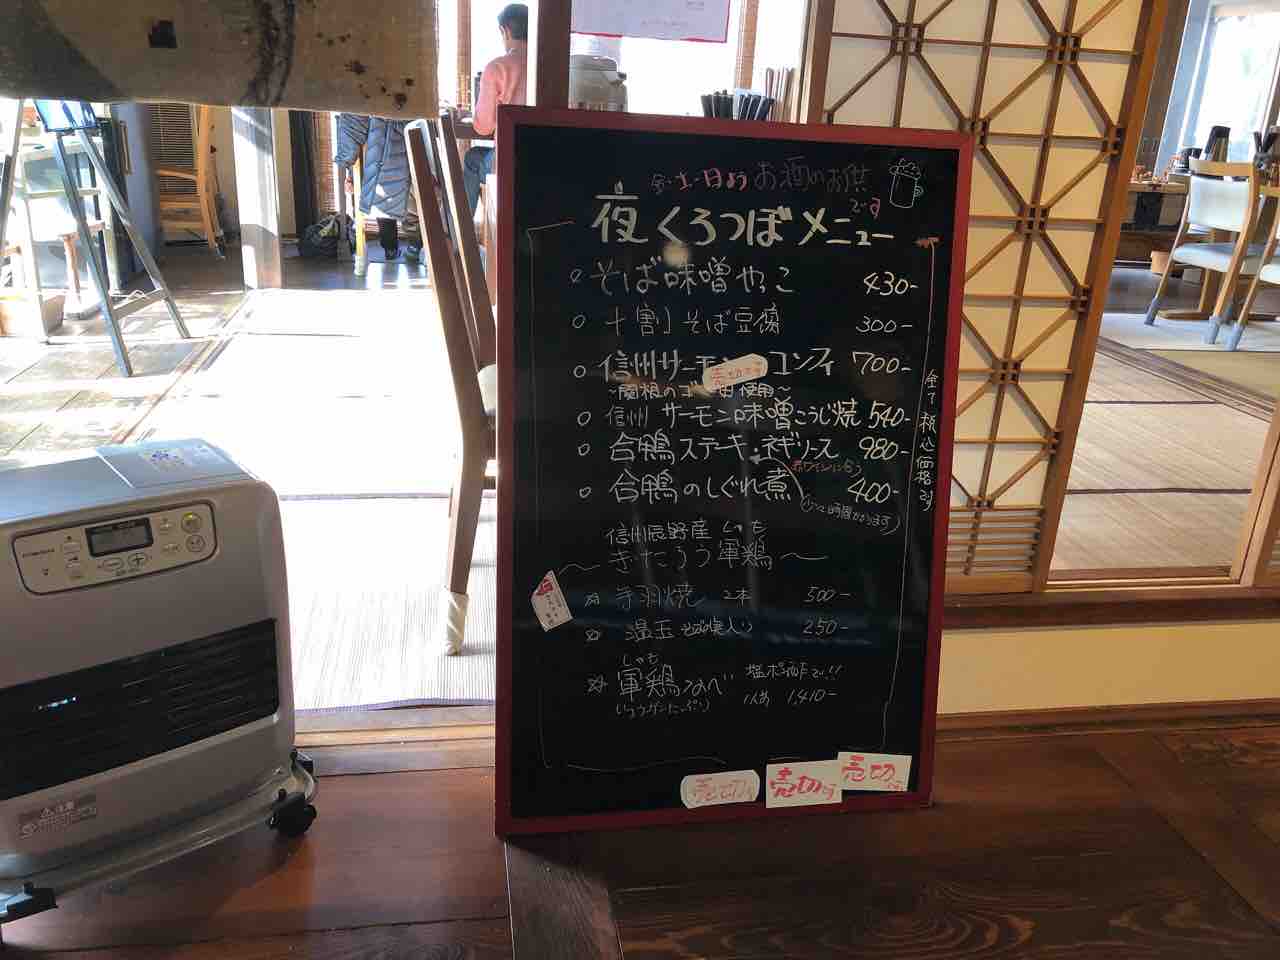 金・土・日よう お酒のお供
です
夜 くろつぼメニュー
○ そば味噌やっこ 430-
○ 十割りそば豆腐 300-
○ 信州サーモン コンフィ 700-
売切です
使用～
○ 信州 サーモン味噌こうじ焼 540-
○ 合鴨ステーキ ネギソース 980-
赤ワインに合う
○ 合鴨のしぐれ煮 400-
全て税込価格です
信州辰野産 しゃも
～ぎたろう軍鶏～
☆ 手羽焼 2本 500-
☆ 温玉 そばの実入り 250-
しゃも
☆ 軍鶏なべ 塩ポン酢で!!
1人前 1,410-
売切です
売切です
売切です